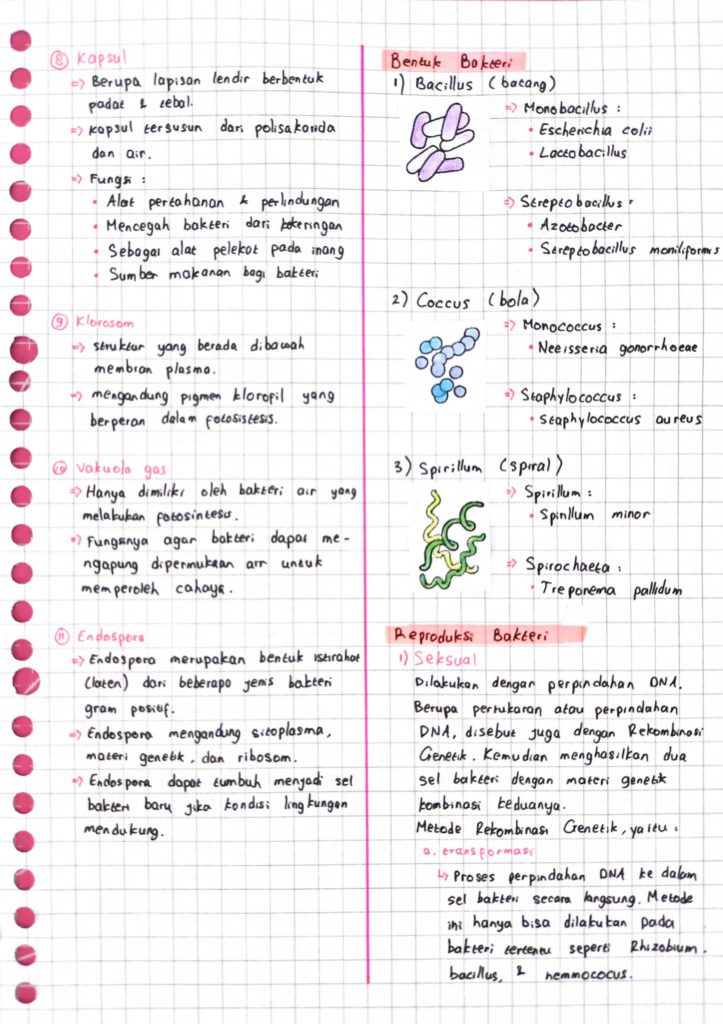 8 Kapsul
=> Berupa lapisan lendir berbentuk
padat & tebal.
=> Kapsul tersusun dari polisakarida
dan air.
=> Fungsi :
• Alat pertahanan & perlindungan
• Mencegah bakteri dari kekeringan
• Sebagai alat pelekat pada inang
• Sumber makanan bagi bakteri
9 Klorosom
=> Struktur yang berada dibawah
membran plasma.
=> mengandung pigmen klorofil yang
berperan dalam fotosistesis.
10 Vakuola gas
=> Hanya dimiliki oleh bakteri air yang
melakukan fotosintesis.
=> Fungsinya agar bakteri dapat me-
ngapung dipermukaan air untuk
memperoleh cahaya.
11 Endospora
=> Endospora merupakan bentuk istirahat
(laten) dari beberapa jenis bakteri
gram positif.
=> Endospora mengandung sitoplasma,
materi genetik, dan ribosom.
=> Endospora dapat tumbuh menjadi sel
bakteri baru jika kondisi lingkungan
mendukung.
Bentuk Bakteri
1) Bacillus (batang)
=> Monobacillus :
• Escherichia colii
• Lactobacillus
=> Streptobacillus :
• Azotobacter
• Streptobacillus moniliformis
2) Coccus (bola)
=> Monococcus :
• Neeisseria gonorrhoeae
=> Staphylococcus :
• Staphylococcus aureus
3) Spirillum (spiral)
=> Spirillum :
• Spirillum minor
=> Spirochaeta :
• Treponema pallidum
Reproduksi Bakteri
1) Seksual
Dilakukan dengan perpindahan DNA.
Berupa pertukaran atau perpindahan
DNA, disebut juga dengan Rekombinasi
Genetik. Kemudian menghasilkan dua
sel bakteri dengan materi genetik
kombinasi keduanya.
Metode Rekombinasi Genetik, yaitu :
a. transformasi
↳ Proses perpindahan DNA ke dalam
sel bakteri secara langsung. Metode
ini hanya bisa dilakukan pada
bakteri tertentu seperti Rhizobium,
bacillus, & nemmococus.